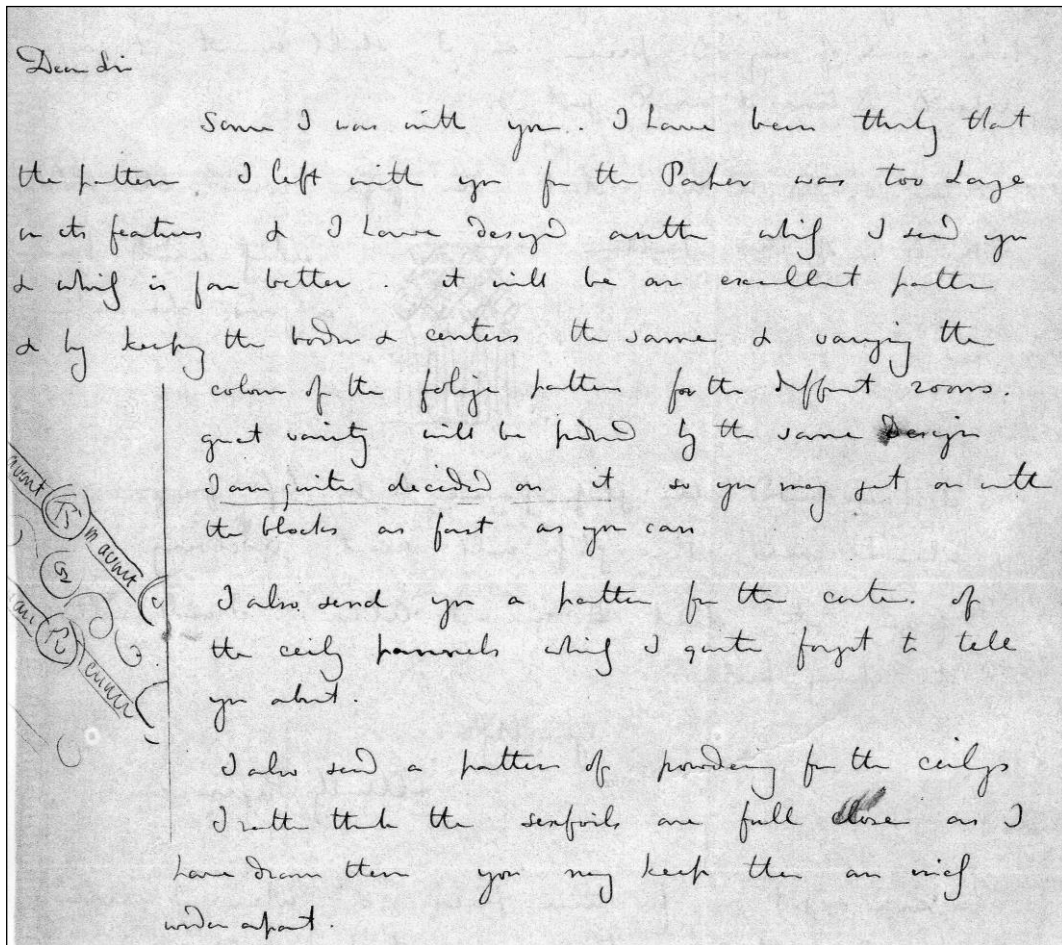 Dear Sir
Since I was with you. I have been thinking that
the pattern I left with you for the Paper was too Large
in its features & I have designed another which I send you
& which is far better. it will be an excellent pattern
& by keeping the border & centers the same & varying the
colour of the foliage pattern for the different rooms.
great variety will be produced by the same design
I am quite decided on it so you may get on with
the blocks as fast as you can
avant
avant
I also send you a pattern for the center of
the ceiling pannels which I quite forgot to tell
you about.
I also send a pattern of powdering for the ceilings
I rather think the sexfoils are full close as I
have drawn them you may keep them an inch
wider apart.